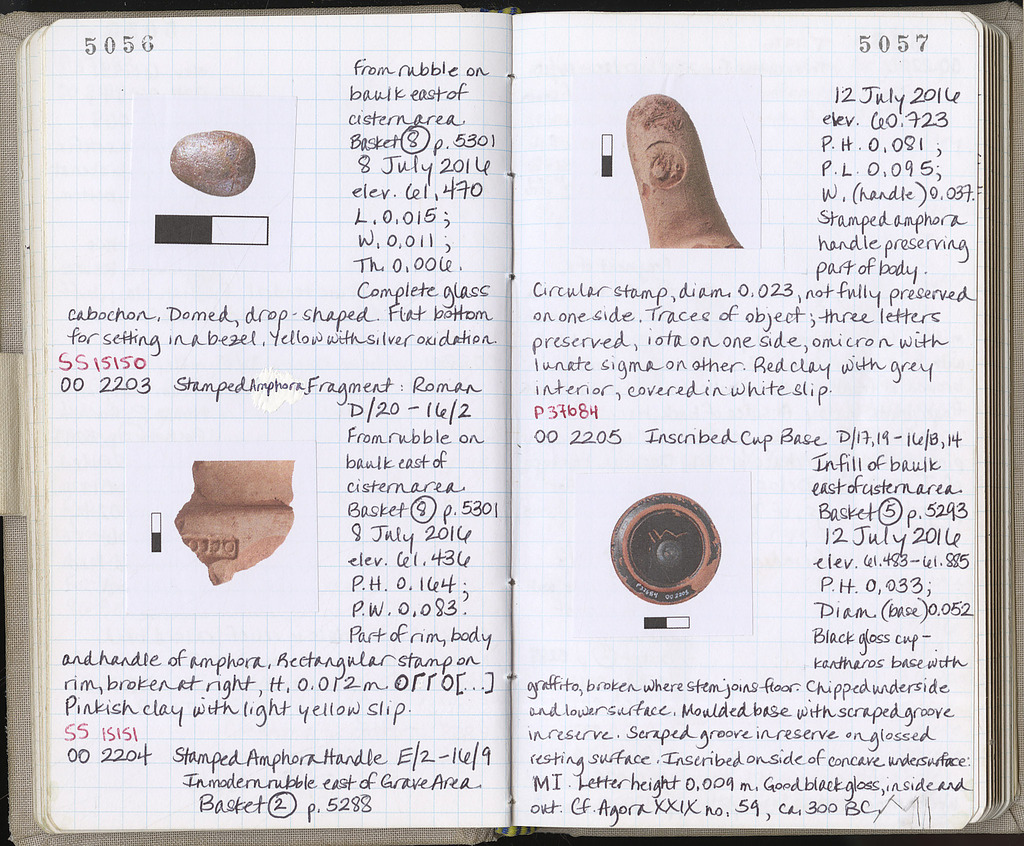 5056
From rubble on
baulk east of
cistern area.
Basket (8) p. 5301
8 July 2016
elev. 61.470
L. 0.015;
W. 0.011;
Th. 0.006.
Complete glass
cabochon. Domed, drop-shaped. Flat bottom
for setting in a bezel. Yellow with silver oxidation.
SS 15150
OO 2203 Stamped Amphora Fragment: Roman
D/20-16/2
From rubble on
baulk east of
cistern area.
Basket (8) p. 5301
8 July 2016
elev. 61.436
P.H. 0.164;
P.W. 0.083.
Part of rim, body
and handle of amphora. Rectangular stamp on
rim, broken at right, H. 0.012 m. ΟΓΓΟ[...]
Pinkish clay with light yellow slip.
SS 15151
OO 2204 Stamped Amphora Handle E/2-16/9
In modern rubble east of Grave Area
Basket (2) p. 5288
5057
12 July 2016
elev. 60.723
P.H. 0.081;
P.L. 0.095;
W. (handle) 0.037.
Stamped amphora
handle preserving
part of body.
Circular stamp, diam. 0.023, not fully preserved
on one side. Traces of object; three letters
preserved, iota on one side, omicron with
lunate sigma on other. Red clay with grey
interior, covered in white slip.
P 37684
OO 2205 Inscribed Cup Base D/17,19-16/B,14
In fill of baulk
east of cistern area.
Basket (5) p. 5293
12 July 2016
elev. 61.483-61.885
P.H. 0.033;
Diam. (base) 0.052
P37684 OO 2205
Black gloss cup-
kantharos base with
graffito, broken where stem joins floor. Chipped underside
and lower surface. Moulded base with scraped groove
in reserve. Scraped groove in reserve on glossed
resting surface. Inscribed on side of concave undersurface:
MI. Letter height 0.009 m. Good black gloss, inside and
out. Cf. Agora XXIX no. 59, ca. 300 BC.